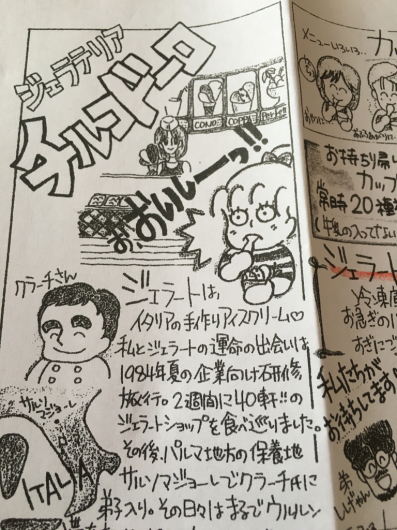 ジェラテリア
チルコドーロ
CONO
COPPA
お、おいしーっ!!
クラーチさん
ジェラートは、
イタリアの手作りアイスクリーム♡
私とジェラートの運命の出会いは、
1984年夏の企業向け研修
旅行の2週間に40軒!!の
ジェラートショップを食べ巡りました。
その後、パルマ地方の保養地
サルソマジョーレでクラーチ氏に
弟子入り。その日々はまるでウルルン
サルソマジョーレ
ITALIA
メニューいろいろ…
カッ
お持ち帰り
カップ
常時20種
ジェラート
冷凍庫
お急ぎの
おきにで
私たちが
お待ちしてます
弟
しげちゃん